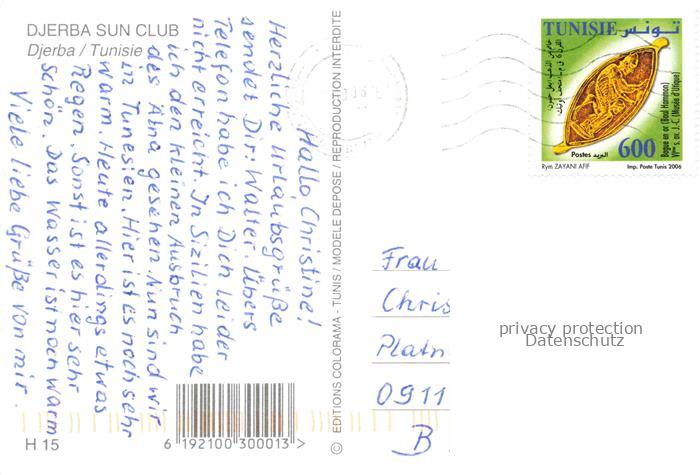 DJERBA SUN CLUB
Djerba / Tunisie
Hallo Christine!
Herzliche Urlaubsgrüße
sendet Dir: Walter. Übers
Telefon habe ich Dich leider
nicht erreicht. In Sizilien habe
ich den kleinen Ausbruch
des Ätna gesehen. Nun sind wir
in Tunesien. Hier ist es noch sehr
warm. Heute allerdings etwas
Regen. Sonst ist es hier sehr
schön. Das Wasser ist noch warm
Viele liebe Grüße von mir.
H 15
6 192100 300013 >
© EDITIONS COLORAMA - TUNIS / MODELE DEPOSE / REPRODUCTION INTERDITE
TUNISIE تونس
Bague en or (Baal Hammon)
VIème s. av. J.-C (Musée d'Utique)
Postes البريد 600
Rym ZAYANI AFIF Imp. Poste Tunis 2006
Frau
Chris
Platn
0911
B
privacy protection
Datenschutz